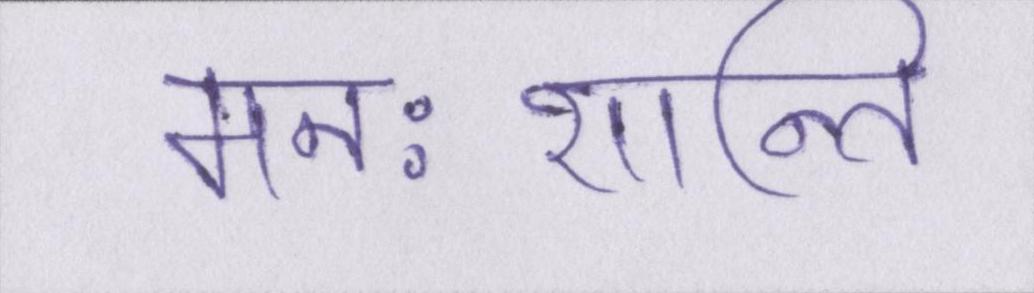 मनः शान्ति